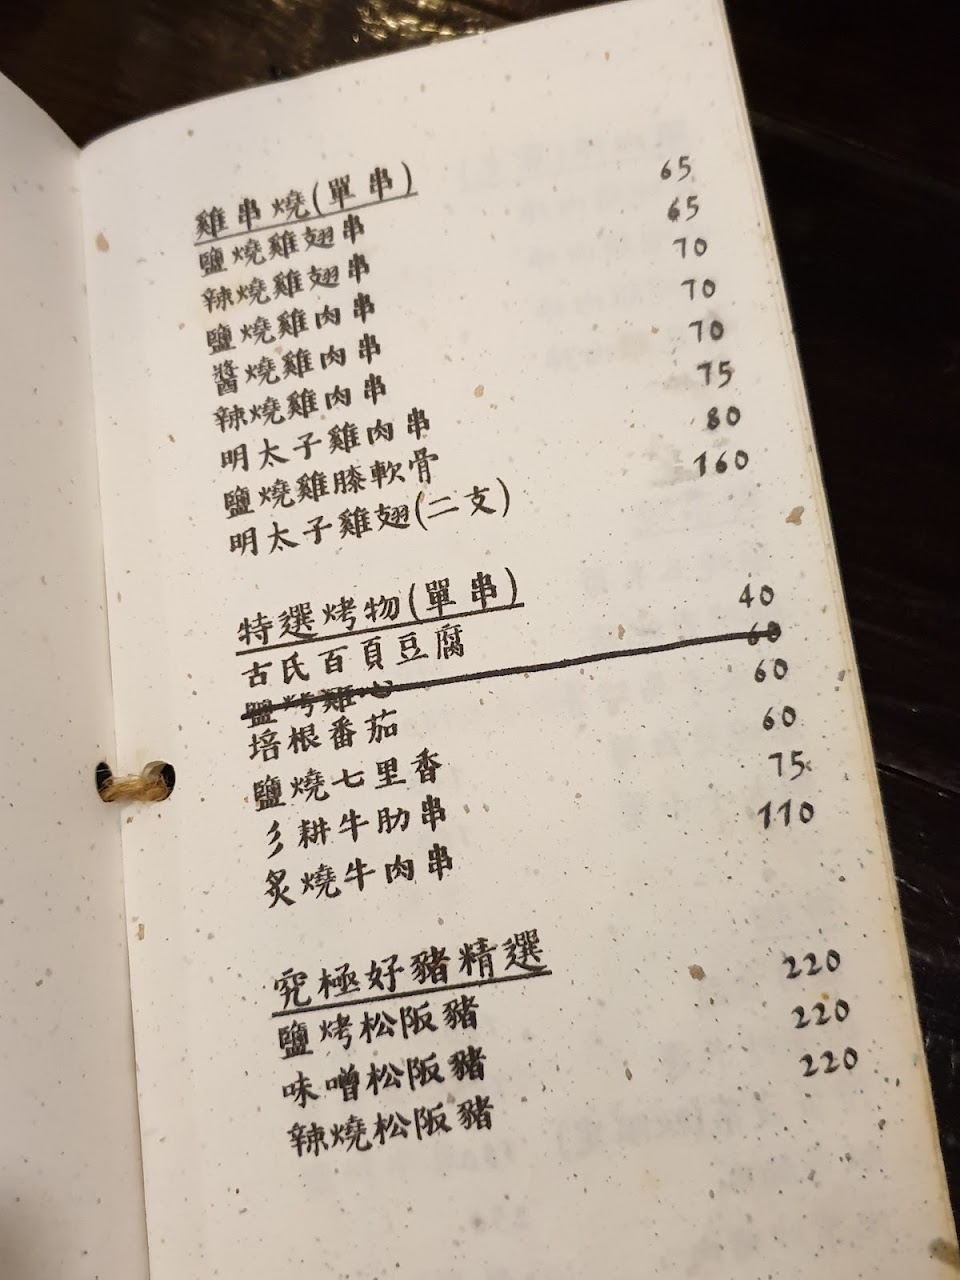 雞串燒(單串)
鹽燒雞翅串 65
辣燒雞翅串 65
鹽燒雞肉串 70
醬燒雞肉串 70
辣燒雞肉串 70
明太子雞肉串 75
鹽燒雞膝軟骨 80
明太子雞翅(二支) 160
特選烤物(單串)
古氏百頁豆腐 40
鹽烤雞心 60
培根番茄 60
鹽燒七里香 60
彡耕牛肋串 75
炙燒牛肉串 110
究極好豬精選
鹽烤松阪豬 220
味噌松阪豬 220
辣燒松阪豬 220